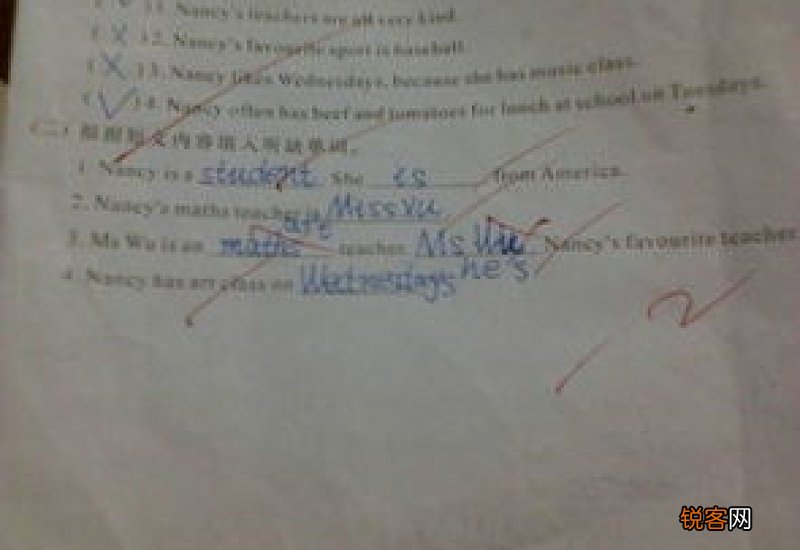 1. Nancy's teachers are all very kind.
( X ) 2. Nancy's favourite sport is baseball.
( X ) 3. Nancy likes Wednesdays, because she has music class.
( √ ) 4. Nancy often has beef and tomatoes for lunch at school on Tuesdays.
(二) 根据短文内容填入所缺单词。
1. Nancy is a student. She is from America.
2. Nancy's maths teacher is Miss
art
3. Ms Wu is an maths teacher. Ms Wu Nancy's favourite teacher
he's
4. Nancy has art class on Wednesdays
2
锐客网